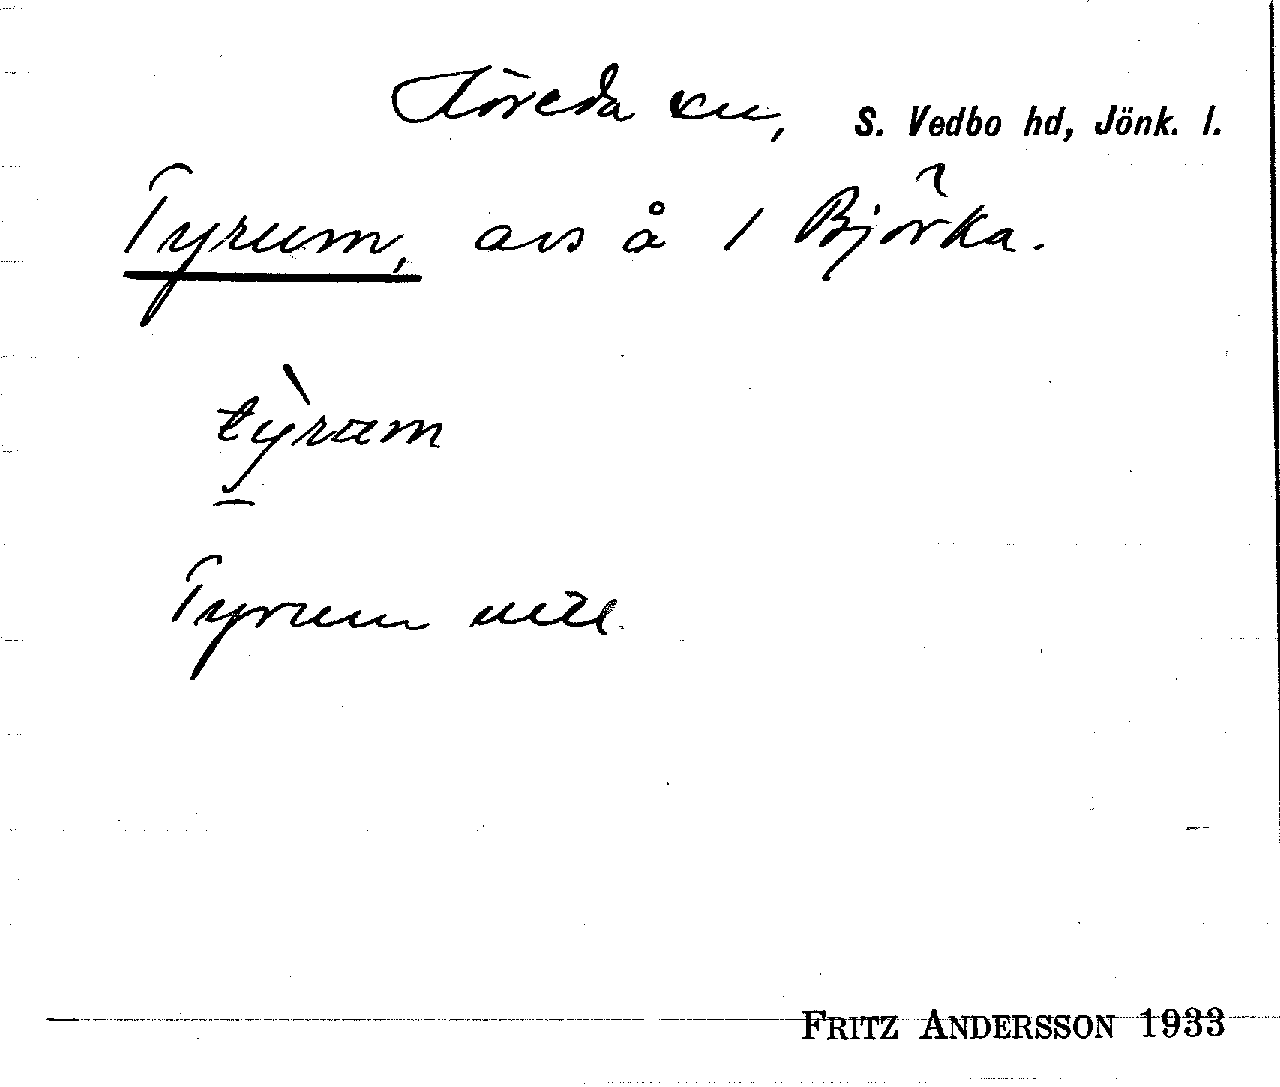 Höreda sn, S. Vedbo hd, Jönk. l.
Tyrum, avs å 1 Björka.
tỳrum
Tyrum
FRITZ ANDERSSON 1933